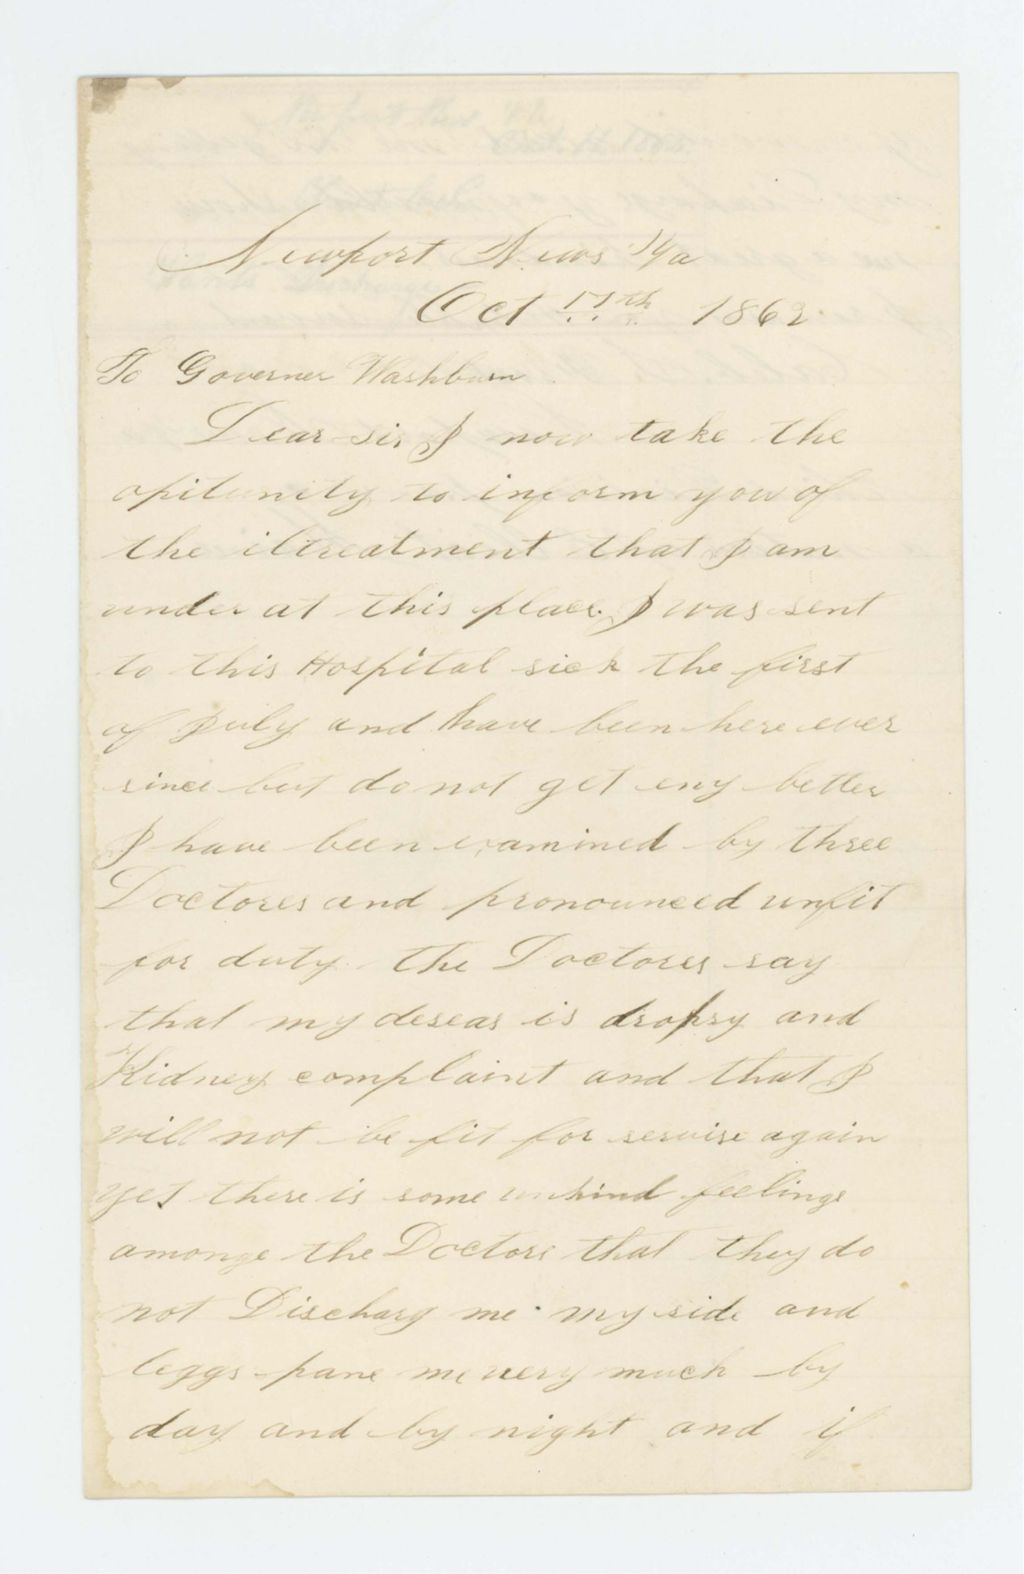 Newport News Va
Oct 17th 1862
To Governer Washburn
Dear sir I now take the
opitunity to inform you of
the iltreatment that I am
under at this place. I was sent
to this Hospital sick the first
of July and have been here ever
since but do not get eny better
I have been examined by three
Doctores and pronounced unfit
for duty the Doctores say
that my deseas is dropsy and
Kidney complaint and that I
will not be fit for servise again
yet there is some unkind feelings
amonge the Doctors that they do
not Discharg me my side and
leggs pane me very much by
day and by night and if